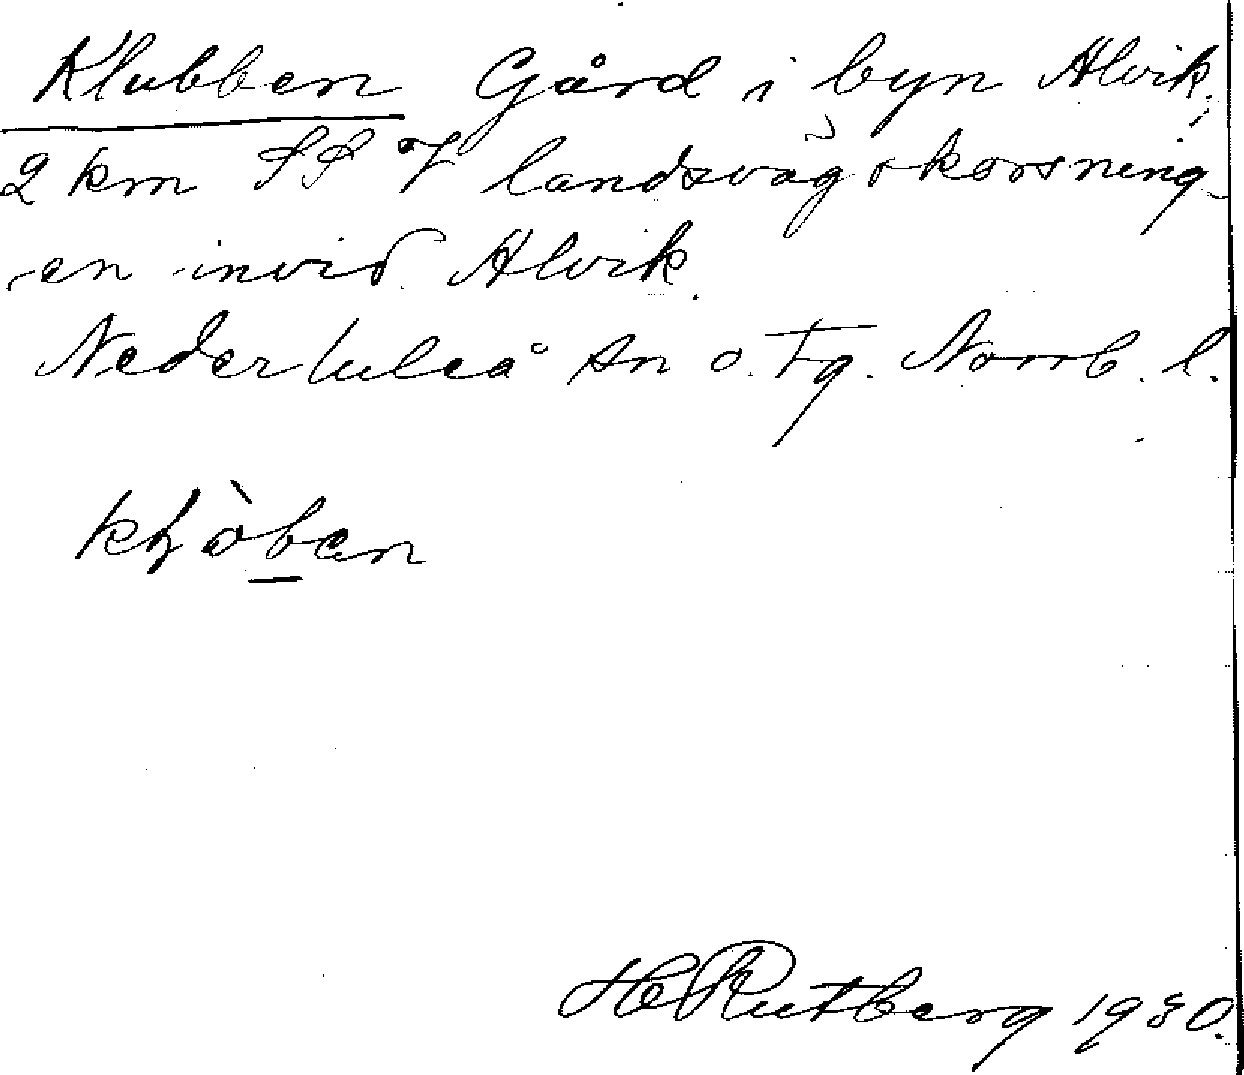 Klubben Gård i byn Alvik.
2 km SSV landsvägskorsning-
en invid Alvik.
Nederluleå sn o. tg. Norrb. l.
kɽòben
H Rutberg 1930.